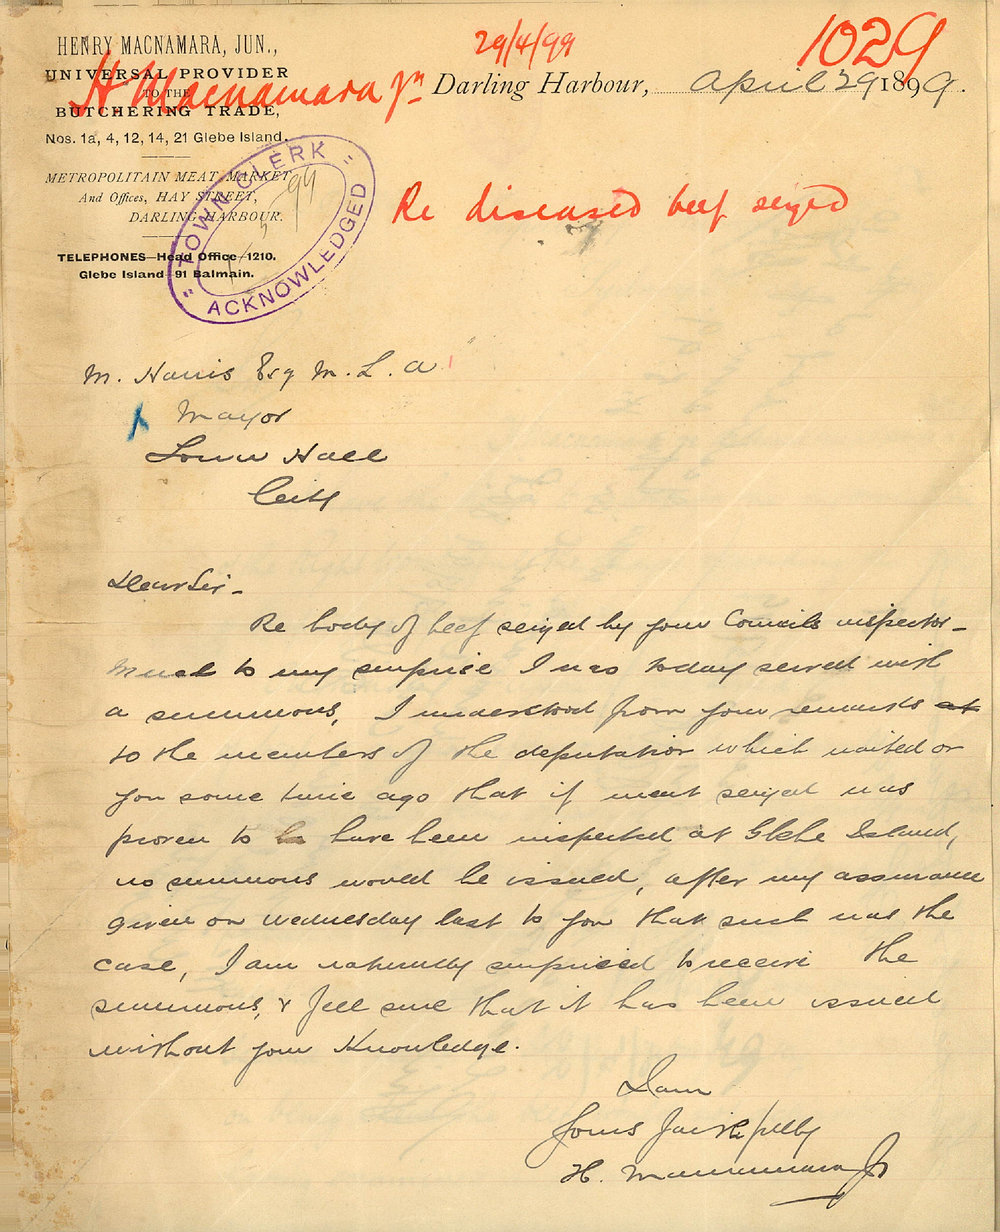 HENRY MACNAMARA, JUN.,
UNIVERSAL PROVIDER
TO THE
BUTCHERING TRADE,
Nos. 1a, 4, 12, 14, 21 Glebe Island.
METROPOLITAIN MEAT MARKET
And Offices, HAY STREET,
DARLING HARBOUR.
TELEPHONES—Head Office—1210.
Glebe Island—91 Balmain.
H. Macnamara Jn
29/4/99
1029
Darling Harbour, April 29 1899.
"TOWN CLERK"
1/5/99
ACKNOWLEDGED
Re diseased beef seized
M. Harris Esq M. L. A
Mayor
Town Hall
City
Dear Sir -
Re body of beef seized by your Councils inspector -
Much to my surprise I was today served with
a summons, I understood from your remarks at
to the members of the deputation which waited on
you some time ago that if meat seized was
proven to be have been inspected at Glebe Island,
no summons would be issued, after my assurance
given on Wednesday last to you that such was the
case, I am naturally surprised to receive the
summons, & feel sure that it has been issued
without your knowledge.
I am
Yours faithfully
H. Macnamara Jr